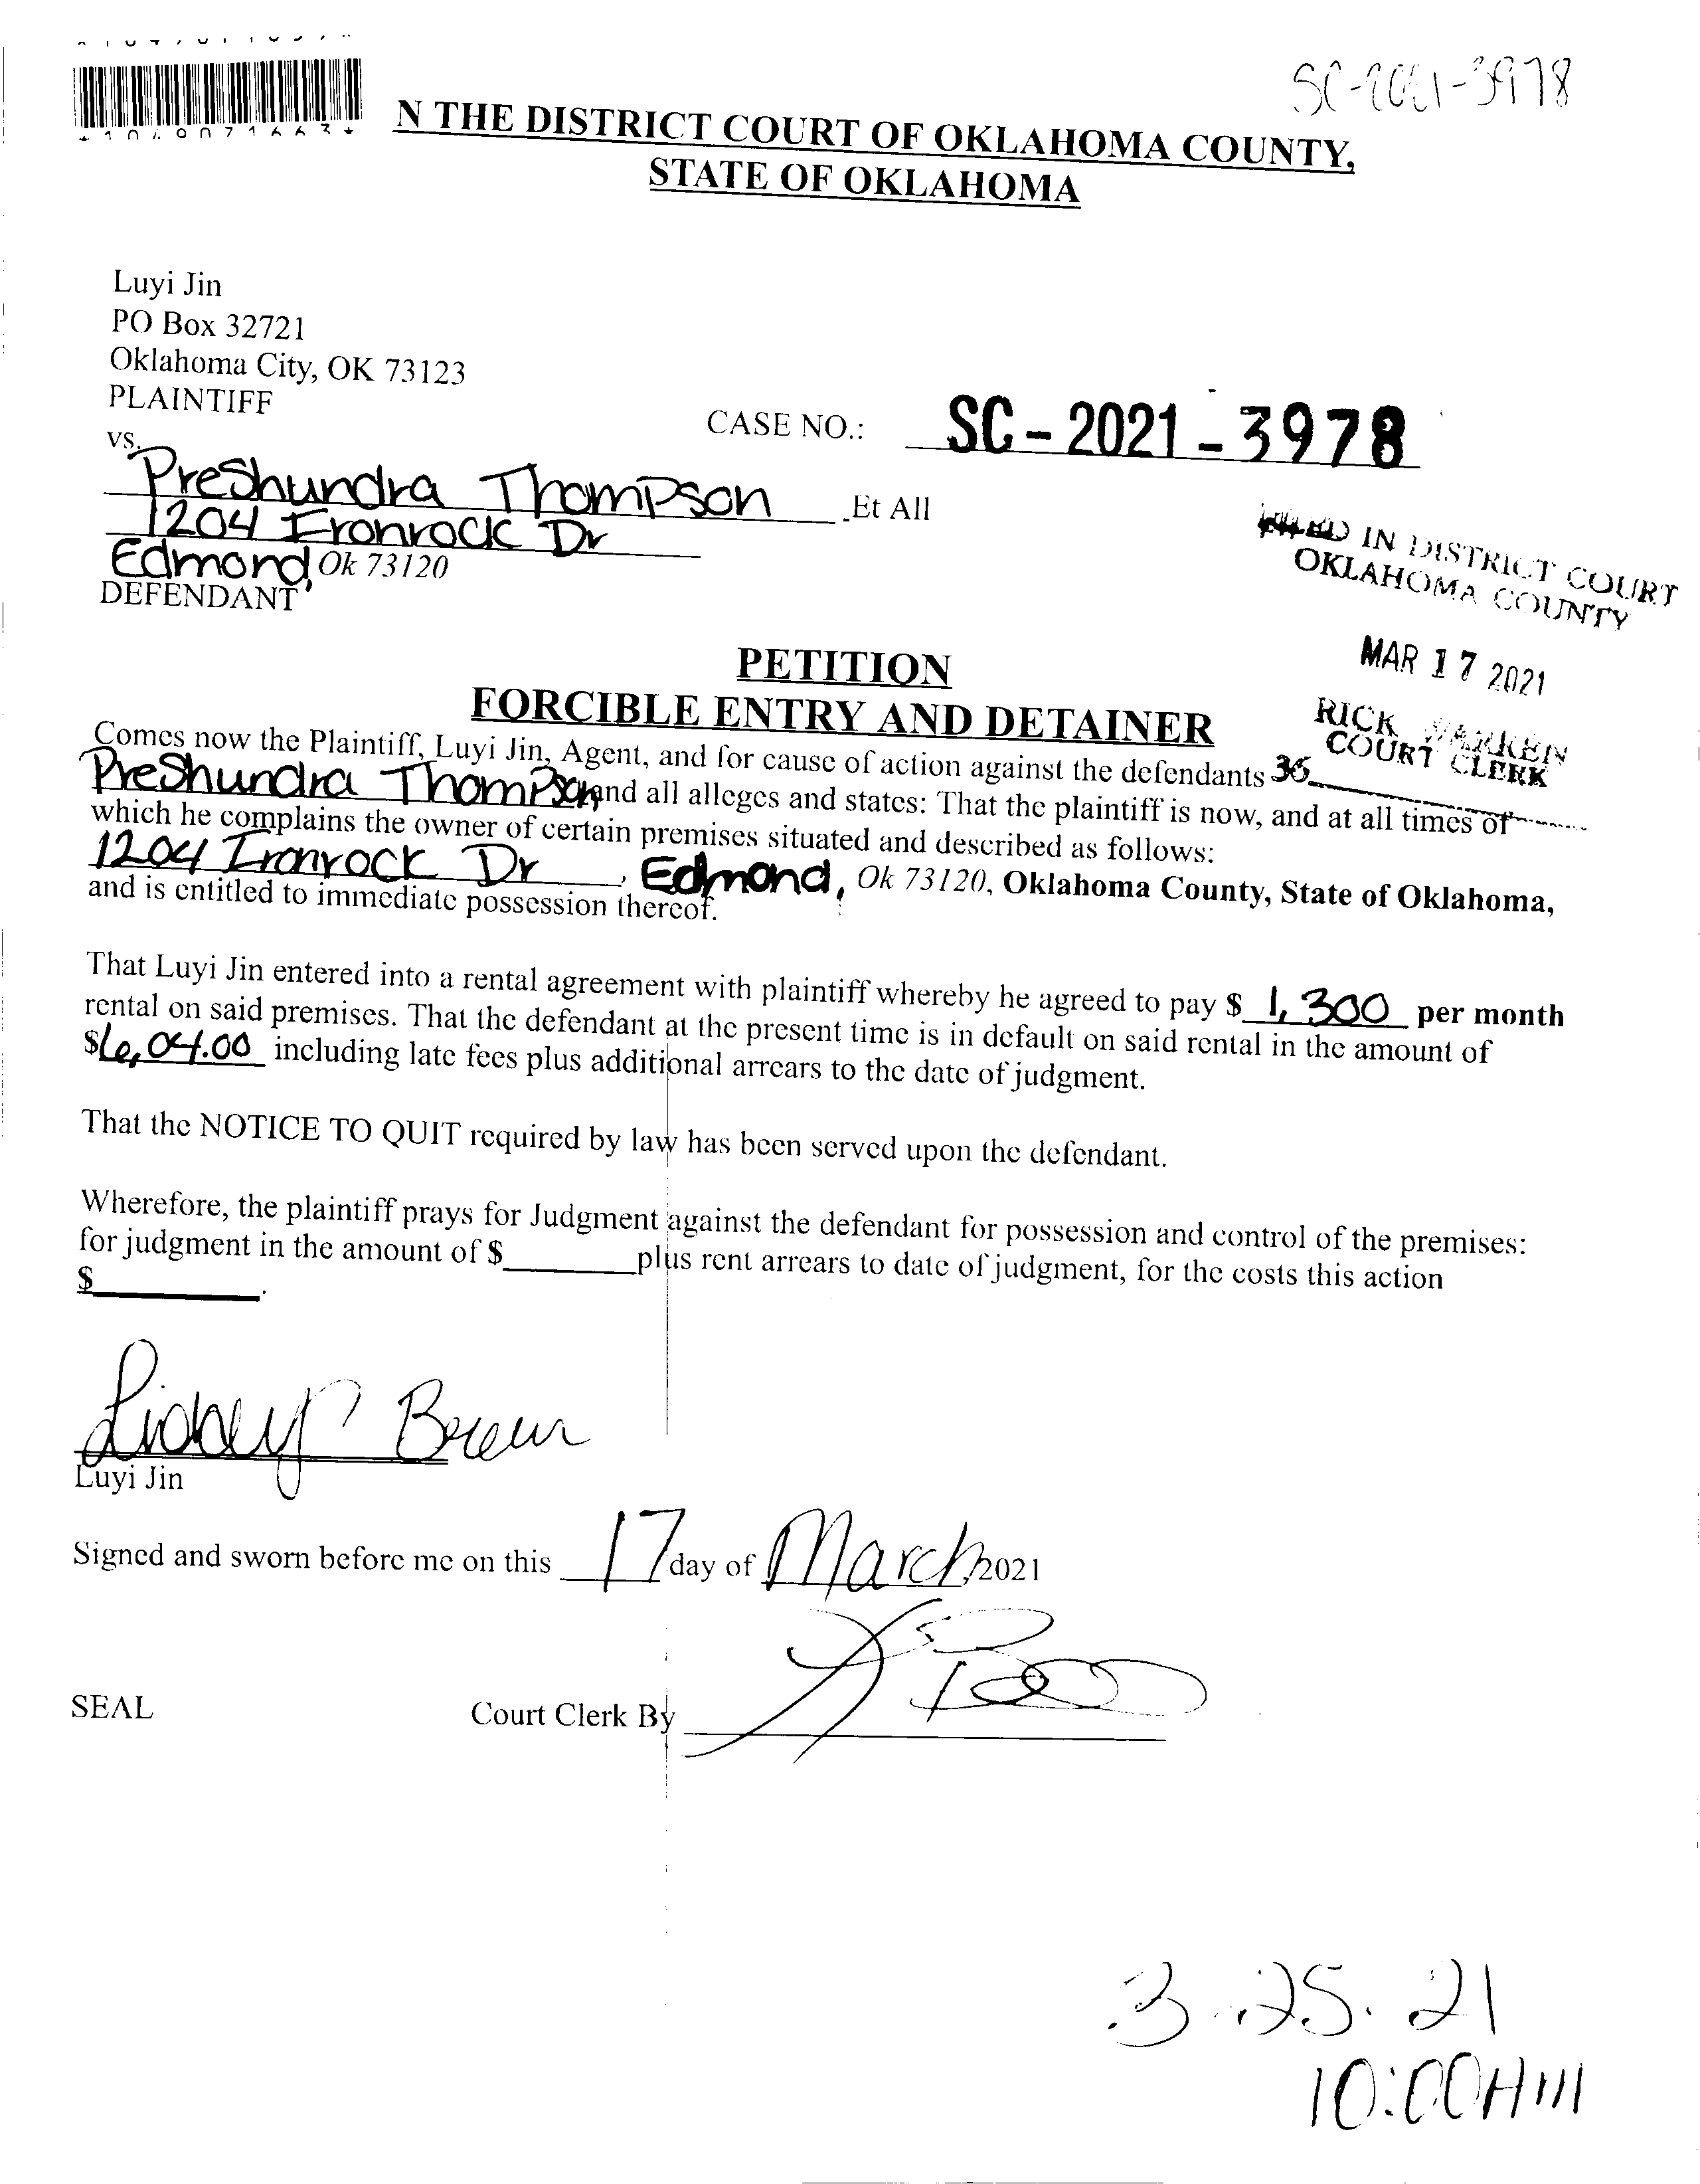 SC-2021-3978
N THE DISTRICT COURT OF OKLAHOMA COUNTY,
STATE OF OKLAHOMA
Luyi Jin
PO Box 32721
Oklahoma City, OK 73123
PLAINTIFF
vs.
CASE NO.: SC-2021-3978
Preshundra Thompson .Et All
1204 Ironrock Dr
Edmond, Ok 73120
DEFENDANT
IN DISTRICT COURT
OKLAHOMA COUNTY
MAR 17 2021
RICK WARREN
COURT CLERK
36
PETITION
FORCIBLE ENTRY AND DETAINER
Comes now the Plaintiff, Luyi Jin, Agent, and for cause of action against the defendants
Preshundra Thompson and all alleges and states: That the plaintiff is now, and at all times of
which he complains the owner of certain premises situated and described as follows:
1204 Ironrock Dr, Edmond, Ok 73120, Oklahoma County, State of Oklahoma,
and is entitled to immediate possession thereof.
That Luyi Jin entered into a rental agreement with plaintiff whereby he agreed to pay $ 1,300 per month
rental on said premises. That the defendant at the present time is in default on said rental in the amount of
$6,04.00 including late fees plus additional arrears to the date of judgment.
That the NOTICE TO QUIT required by law has been served upon the defendant.
Wherefore, the plaintiff prays for Judgment against the defendant for possession and control of the premises:
for judgment in the amount of $________plus rent arrears to date of judgment, for the costs this action
$__________.
Luyi Jin
Signed and sworn before me on this 17 day of March, 2021
SEAL
Court Clerk By
3.25.21
10:00AM